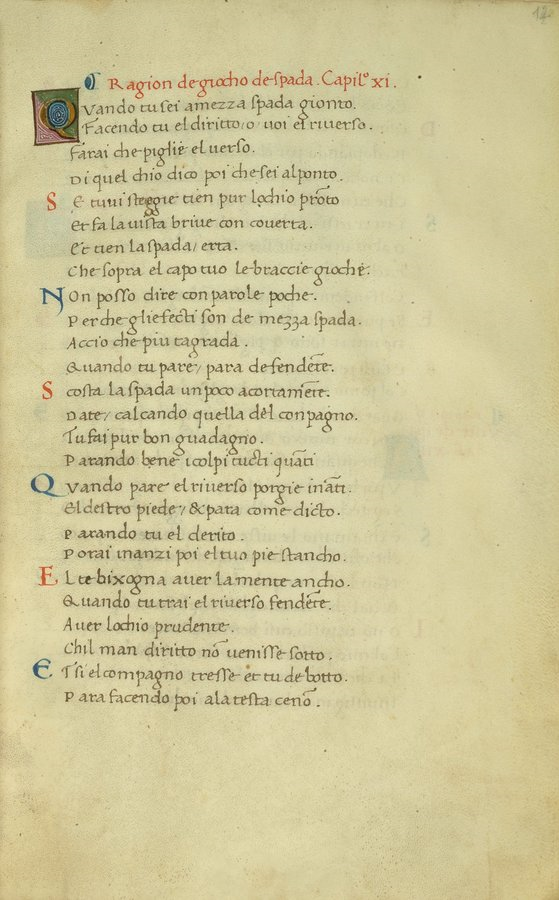 12
Ragion de giocho de spada. Capilº xi.
QVando tu sei amezza spada gionto.
Facendo tu el diritto / o / voi el riverso.
farai che piglie el verso.
Di quel chio dico poi che sei alponto.
SE tuvi steggie tien pur lochio prõto
Et fa la vista brive con coverta.
Et tien la spada / erta.
Che sopra el capo tuo le braccie gioche.
NOn posso dire con parole poche.
Perche glie fecti son de mezza spada.
Accio che piu tagrada.
Quando tu pare / para defendẽte.
Scosta la spada un poco acortamẽte.
Date / calcando quella del conpagno.
Tu fai pur bon guadagno.
Parando bene i colpi tucti quãti
QVando pare el riverso porgie inãti.
El destro piede / & para come dicto.
Parando tu el derito.
Porai inanzi poi el tuo pie stancho.
EL te bixogna aver la mente ancho.
Quando tu trai el riverso fendẽte.
Aver lochio prudente.
Chil man diritto nõ venisse sotto.
ET si el compagno tresse et tu de botto.
Para facendo poi ala testa cenõ.